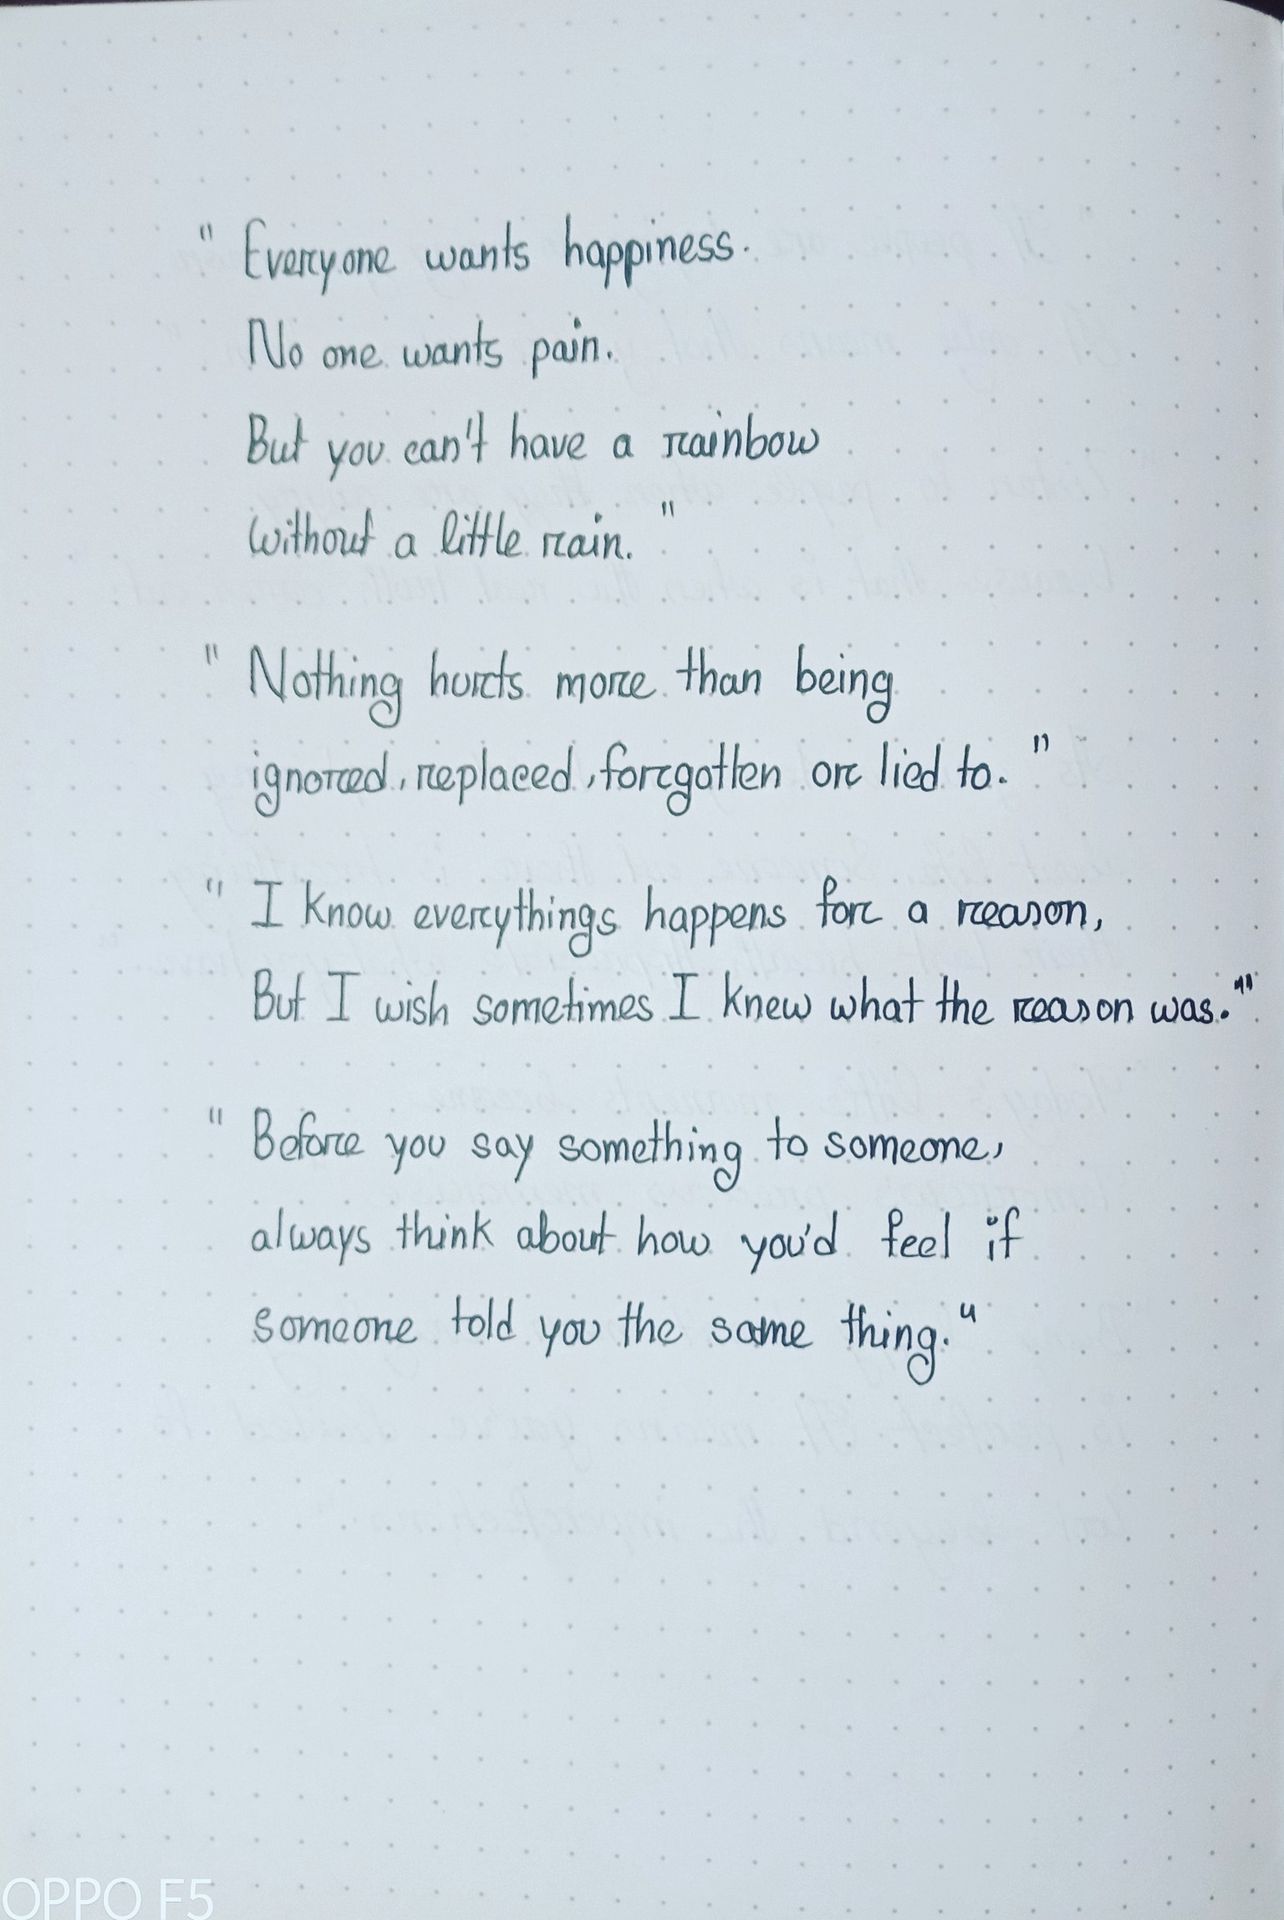 " Everyone wants happiness.
No one wants pain.
But you can't have a rainbow
without a little rain. "
" Nothing hurts more than being
ignored, replaced, forgotten or lied to. "
" I know everythings happens for a reason,
But I wish sometimes I knew what the reason was."
" Before you say something to someone,
always think about how you'd feel if
someone told you the same thing."
OPPO F5